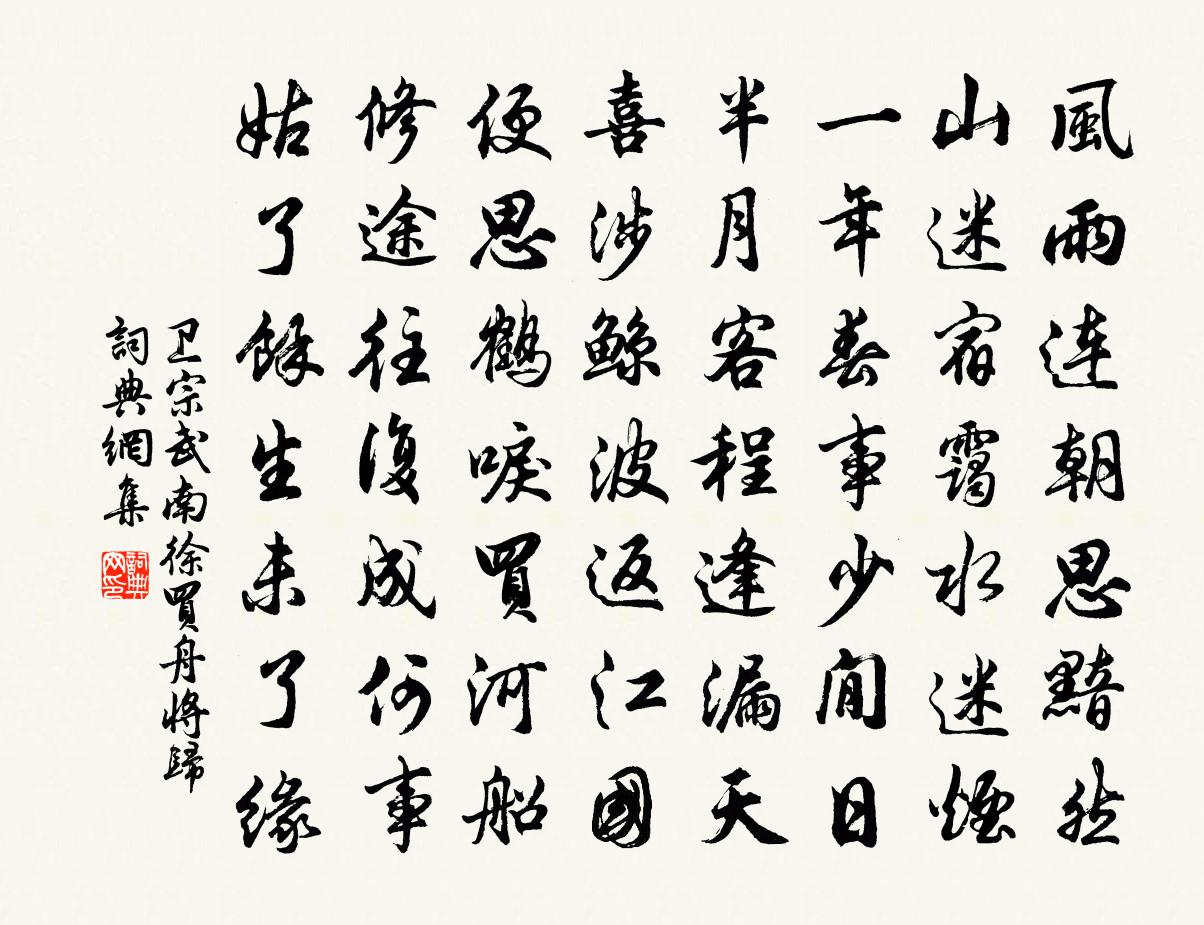 風雨連朝思黯然
山迷宿靄水迷煙
一年春事少閒日
半月客程逢漏天
喜涉鯨波返江國
便思鶴唳買河船
修途往復成何事
姑了餘生未了緣
卫宗武南徐買舟將歸
詞典網集
詞典网印